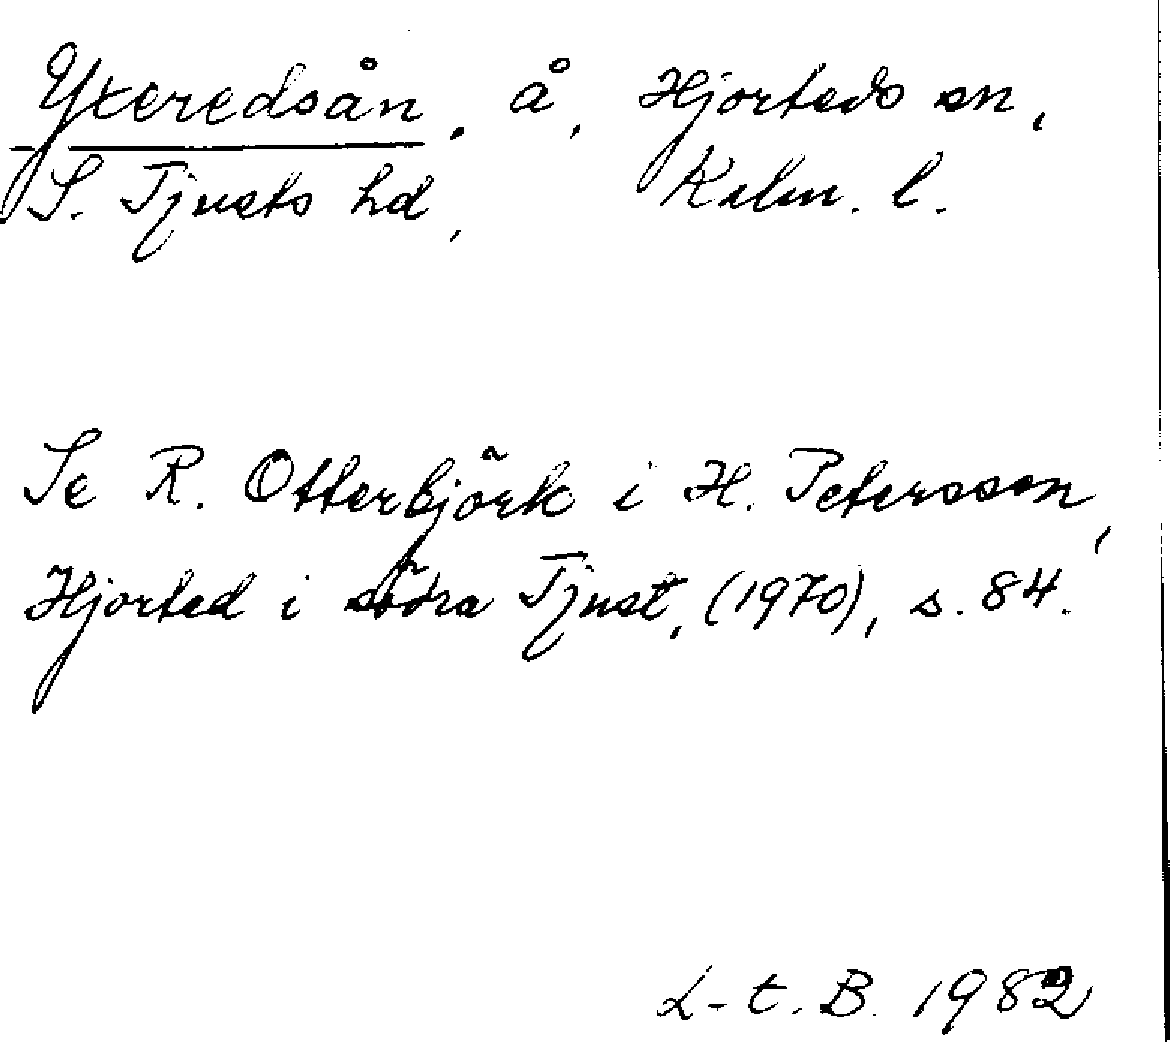 Yxeredsån, å, Hjorteds sn,
S. Tjusts hd, Kalm. l.
Se R. Otterbjörk i H. Petersson,
Hjorted i södra Tjust, (1970), s. 84.
L-t. B. 1982